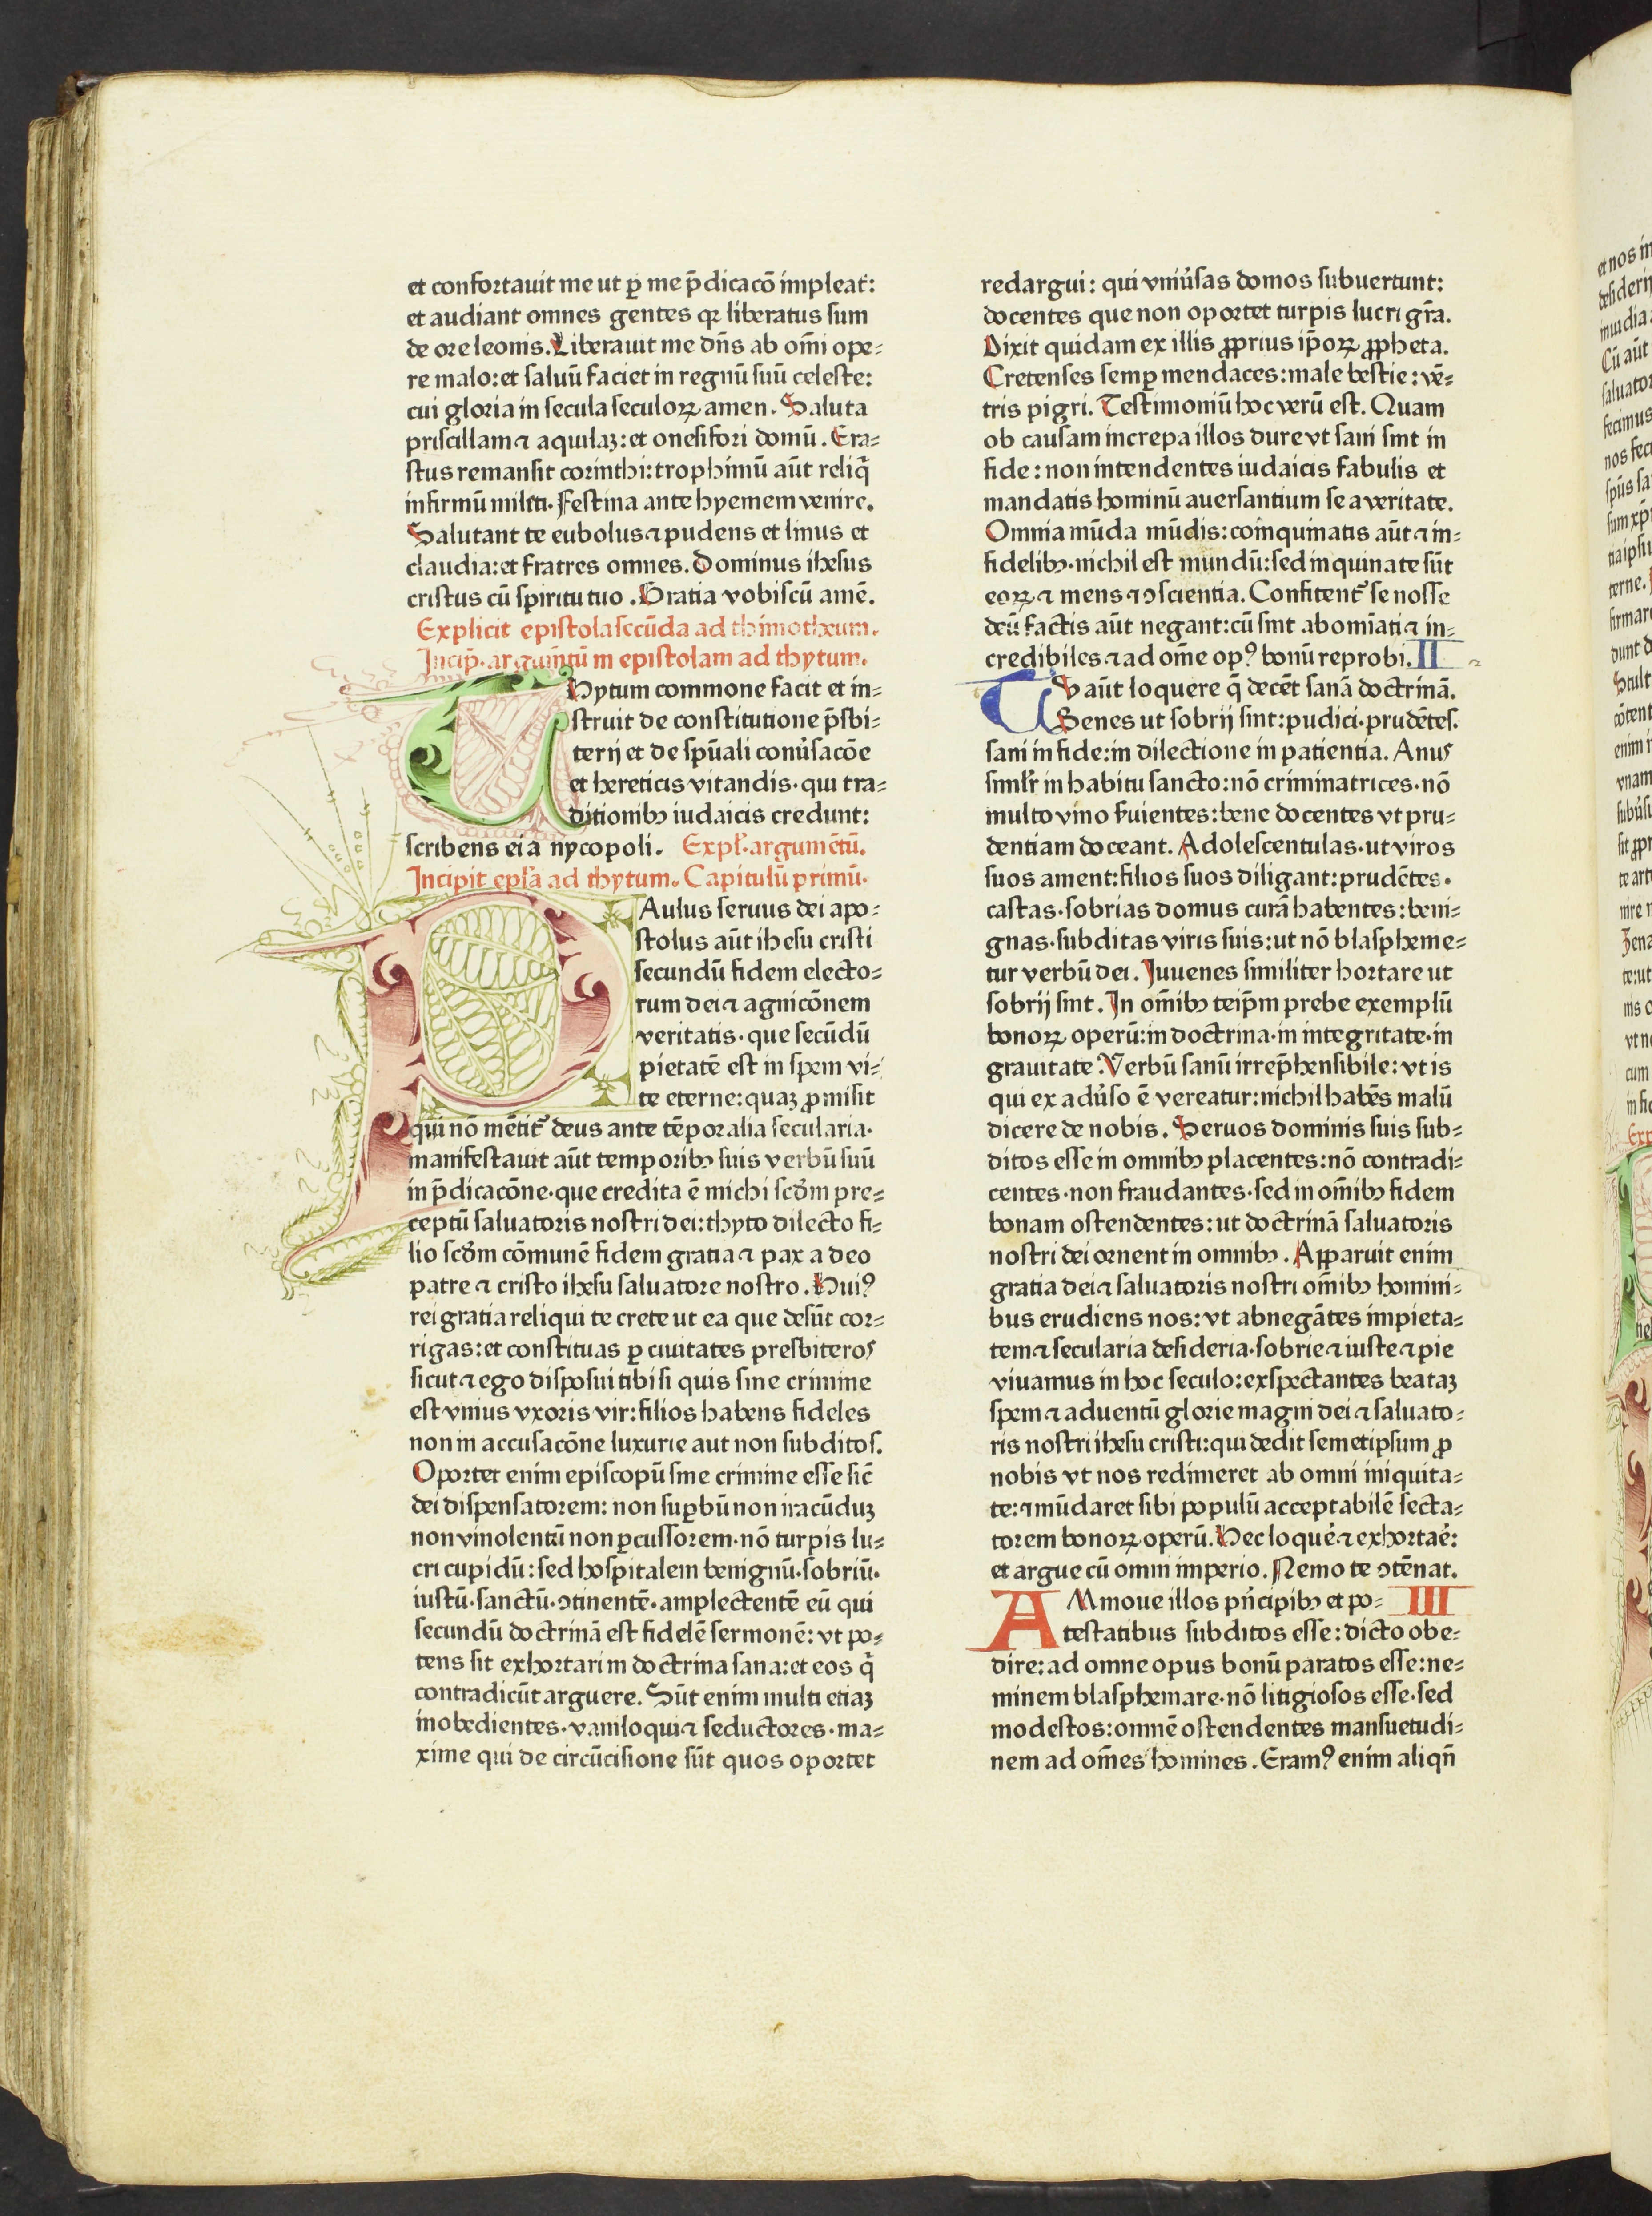 et confortauit me ut ꝑ me p̄dicacō impleat᷑:
et audiant omnes gentes qꝛ liberatus sum
de ore leonis. Liberauit me dn̄s ab om̄i ope⸗
re malo: et saluū faciet in regnū suū celeste:
cui gloria in secula seculoꝝ amen. Saluta
priscillam ⁊ aquilaꝫ: et onesifori domū. Era⸗
stus remansit corinthi: trophimū aūt reliq̄
infirmū mileti. Festina ante hyemem venire.
Salutant te eubolus ⁊ pudens et linus et
claudia: et fratres omnes. Dominus ihesus
cristus cū spiritu tuo. Gratia vobiscū amē.
Explicit epistola secūda ad thimotheum.
Incip̄. argum̄tū in epistolam ad thytum.
THytum commone facit et in⸗
struit de constitutione p̄sbi⸗
terij et de spūali conu̓sacōe
et hereticis vitandis. qui tra⸗
ditionibꝫ iudaicis credunt:
scribens ei a nycopoli. Expl̓. argumētū.
Incipit epl̓a ad thytum. Capitulū primū.
PAulus seruus dei apo⸗
stolus aūt ihesu cristi
secundū fidem electo⸗
rum dei ⁊ agnicōnem
veritatis. que secūdū
pietatē est in spem vi⸗
te eterne: quaꝫ ꝓmisit
qui nō mētit᷑ deus ante tēporalia secularia.
manifestauit aūt temporibꝫ suis verbū suū
in p̄dicacōne. que credita ē michi scd̓m pre⸗
ceptū saluatoris nostri dei: thyto dilecto fi⸗
lio scd̓m cōmunē fidem gratia ⁊ pax a deo
patre ⁊ cristo ihesu saluatore nostro. Huiꝰ
rei gratia reliqui te crete ut ea que desūt cor⸗
rigas: et constituas ꝑ ciuitates presbiteros
sicut ⁊ ego disposui tibi si quis sine crimine
est vnius vxoris vir: filios habens fideles
non in accusacōne luxurie aut non subditos.
Oportet enim episcopū sine crimine esse sic̄
dei dispensatorem: non suꝑbū non iracūduꝫ
non vinolentū non ꝑcussorem. nō turpis lu⸗
cri cupidū: sed hospitalem benignū. sobriū.
iustū. sanctū. ↄtinentē. amplectentē eū qui
secundū doctrinā est fidelē sermonē: vt po⸗
tens sit exhortari in doctrina sana: et eos q̄
contradicūt arguere. Sūt enim multi etiaꝫ
inobedientes. vaniloqui ⁊ seductores. ma⸗
xime qui de circūcisione sūt quos oportet
redargui: qui vniu̓sas domos subuertunt:
docentes que non oportet turpis lucri gr̄a.
Dixit quidam ex illis ꝓprius ip̄oꝝ ꝓpheta.
Cretenses semꝑ mendaces: male bestie: vē⸗
tris pigri. Testimoniū hoc verū est. Quam
ob causam increpa illos dure vt sani sint in
fide: non intendentes iudaicis fabulis et
mandatis hominū auersantium se a veritate.
Omnia mūda mūdis: coinquinatis aūt ⁊ in⸗
fidelibꝫ. nichil est mundū: sed inquinate sūt
eoꝝ ⁊ mens ⁊ ↄscientia. Confitent᷑ se nosse
deū factis aūt negant: cū sint abomīati ⁊ in⸗
credibiles ⁊ ad om̄e opꝰ bonū reprobi. II
TV aūt loquere q̄ decēt sanā doctrinā.
Senes ut sobrij sint: pudici. prudētes.
sani in fide: in dilectione in patientia. Anus
simil̓r in habitu sancto: nō criminatrices. nō
multo vino s̓uientes: bene docentes vt pru⸗
dentiam doceant. Adolescentulas. ut viros
suos ament: filios suos diligant: prudētes.
castas. sobrias domus curā habentes: beni⸗
gnas. subditas viris suis: ut nō blaspheme⸗
tur verbū dei. Iuuenes similiter hortare ut
sobrij sint. In om̄ibꝫ teip̄m prebe exemplū
bonoꝝ operū: in doctrina. in integritate. in
grauitate. Verbū sanū irrep̄hensibile: vt is
qui ex adu̓so ē vereatur: nichil habēs malū
dicere de nobis. Seruos dominis suis sub⸗
ditos esse in omnibꝫ placentes: nō contradi⸗
centes. non fraudantes. sed in om̄ibꝫ fidem
bonam ostendentes: ut doctrinā saluatoris
nostri dei ornent in omnibꝫ. Apparuit enim
gratia dei ⁊ saluatoris nostri om̄ibꝫ homini⸗
bus erudiens nos: vt abnegātes impieta⸗
tem ⁊ secularia desideria. sobrie ⁊ iuste ⁊ pie
viuamus in hoc seculo: exspectantes beataꝫ
spem ⁊ aduentū glorie magni dei ⁊ saluato⸗
ris nostri ihesu cristi: qui dedit semetipsum ꝓ
nobis vt nos redimeret ab omni iniquita⸗
te: ⁊ mūdaret sibi populū acceptabilē secta⸗
torem bonoꝝ operū. Hec loque̓ ⁊ exhortae̓:
et argue cū omni imperio. Nemo te ↄtēnat.
AMmoue illos pn̓cipibꝫ et po⸗ III
testatibus subditos esse: dicto obe⸗
dire: ad omne opus bonū paratos esse: ne⸗
minem blasphemare. nō litigiosos esse. sed
modestos: omnē ostendentes mansuetudi⸗
nem ad om̄es homines. Eramꝰ enim aliqn̄